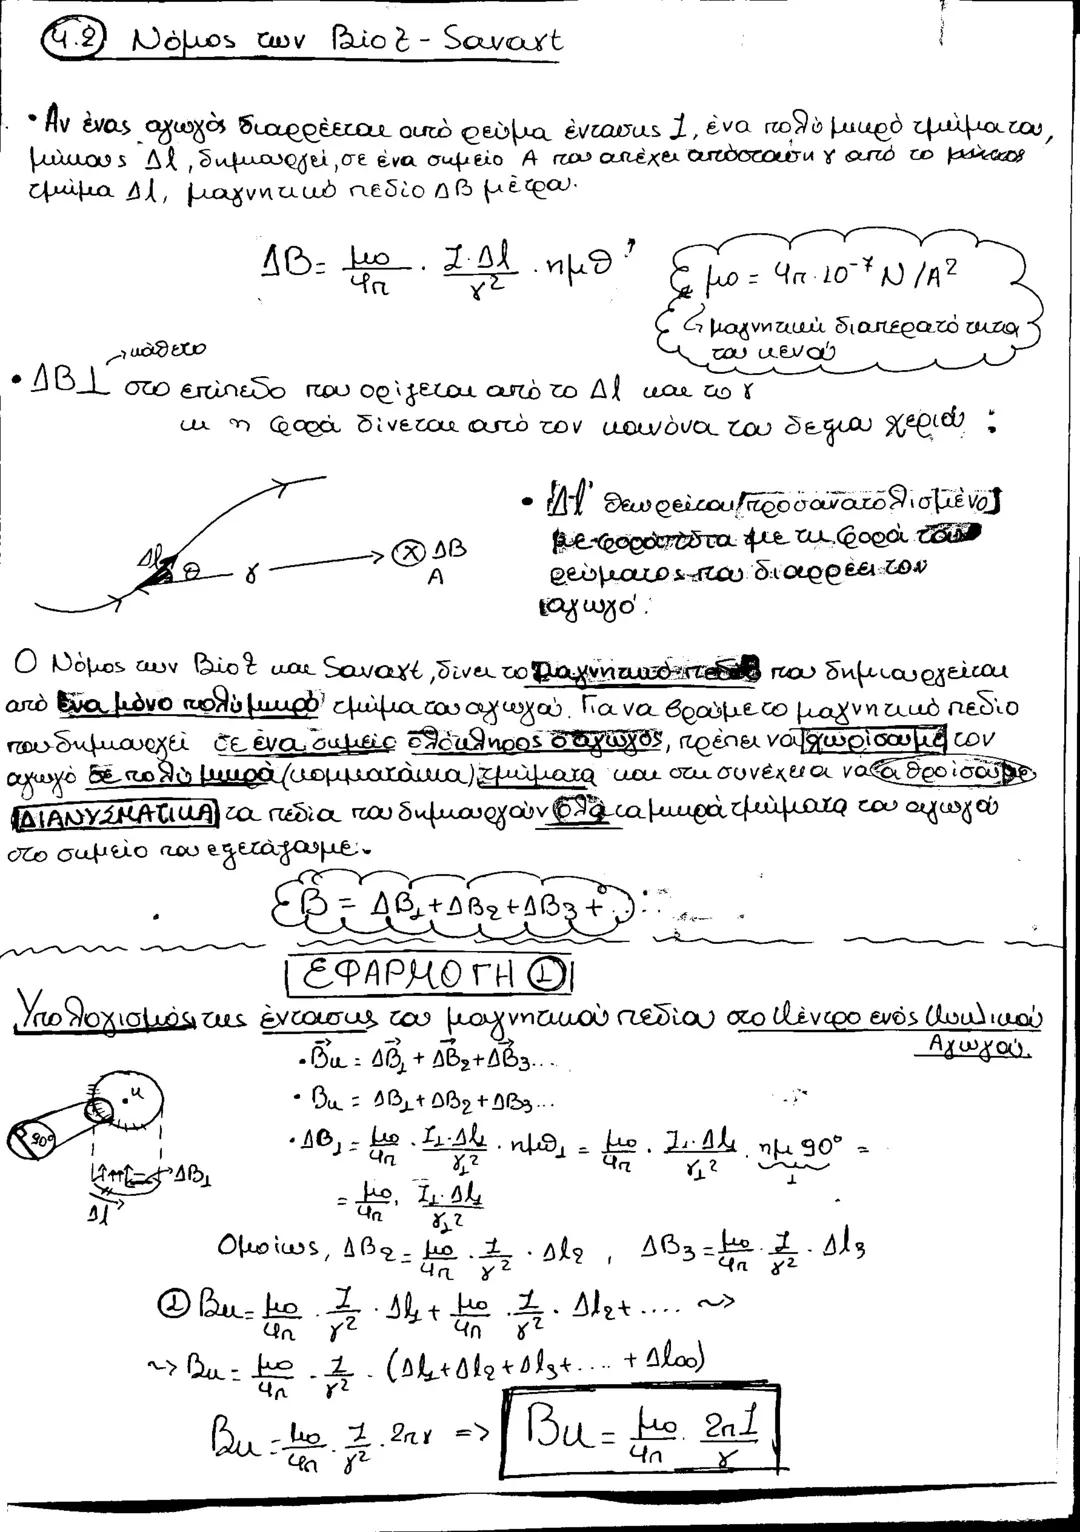 4.2 Νόμος των Biot - Savart
• Αν ένας αγωγός διαρρέεται από ρεύμα έντασης I, ένα πολύ μικρό τμήμα του,
μήκους Δl, δημιουργεί, σε ένα σημείο Α που απέχει απόσταση r από το
τμήμα Δl, μαγνητικό πεδίο ΔΒ μέτρου.
ΔΒ = μο/4π · I·Δl/r² · ημθ
μο = 4π·10⁻⁷ N/A²
↳ μαγνητική διαπερατότητα
του κενού
→ κάθετο
• ΔΒ ⊥ στο επίπεδο που ορίζεται από το Δl και το r
κ η φορά δίνεται από τον κανόνα του δεξιού χεριού:
• Δl θεωρείται προσανατολισμένο
με φορά ίδια με τη φορά του
ρεύματος που διαρρέει τον
αγωγό.
Δl θ r ⓧ ΔΒ
Α
Ο Νόμος των Biot και Savart, δίνει το μαγνητικό πεδίο που δημιουργείται
από ένα μόνο πολύ μικρό τμήμα του αγωγού. Για να βρούμε το μαγνητικό πεδίο
που δημιουργεί σε ένα σημείο ολόκληρος ο αγωγός, πρέπει να χωρίσουμε τον
αγωγό σε πολύ μικρά (κομματάκια) τμήματα και στη συνέχεια να αθροίσουμε
ΔΙΑΝΥΣΜΑΤΙΚΑ τα πεδία που δημιουργούν όλα τα μικρά τμήματα του αγωγού
στο σημείο που εξετάζουμε.
Β = ΔΒ₁+ΔΒ₂+ΔΒ₃+...
ΕΦΑΡΜΟΓΗ ①
Υπολογισμός της έντασης του μαγνητικού πεδίου στο κέντρο ενός Κυκλικού
Αγωγού.
• B⃗κ = ΔB⃗₁ + ΔB⃗₂ + ΔB⃗₃...
• Βκ = ΔΒ₁+ΔΒ₂+ΔΒ₃...
κ
90°
ΔΒ₁
Δl
• ΔΒ₁ = μο/4π · I₁·Δl₁/r₁² · ημθ₁ = μο/4π · I₁·Δl₁/r₁² · ημ 90° =
1
= μο/4π · I₁·Δl₁/r₁²
Ομοίως, ΔΒ₂ = μο/4π · I/r² · Δl₂, ΔΒ₃ = μο/4π · I/r² · Δl₃
① Βκ = μο/4π · I/r² · Δl₁ + μο/4π · I/r² · Δl₂+.... ~>
~> Βκ = μο/4π · I/r² · (Δl₁+Δl₂+Δl₃+.... + Δl∞)
Βκ = μο/4π · I/r² · 2πr => Βκ = μο/4π · 2πI/r